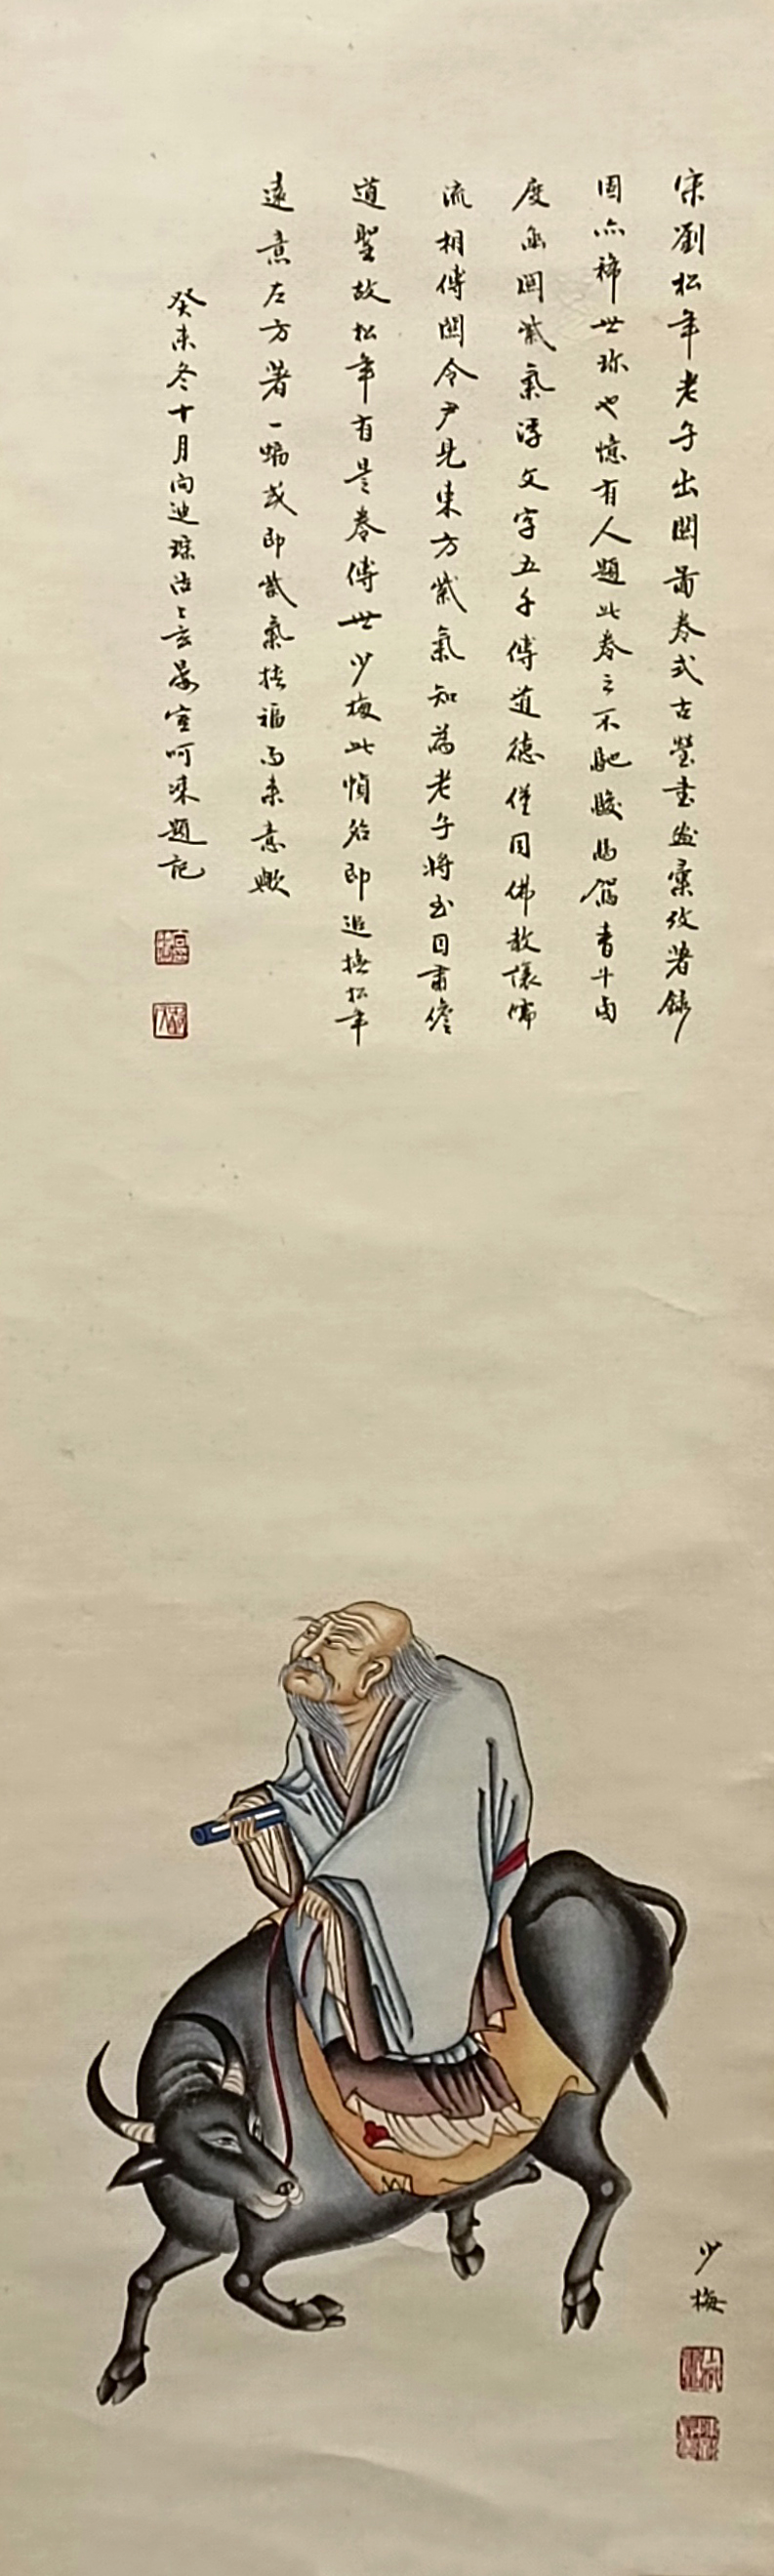 宋劉松年老子出關圖卷式古堂書畫彙攷著錄
固亦稀世珍也憶有人題此卷云不馳駿馬駕青牛
度函關紫氣浮文字五千傳道德僅同佛教讓儒
流相傳關令尹見東方紫氣知為老子將至因肅儋
道聖故松年有是卷傳世少梅此幀殆即追橅松年
遠意左方著一蝠或即紫氣挾福而來意歟
癸未冬十月向迪琮時呵凍題記
少梅